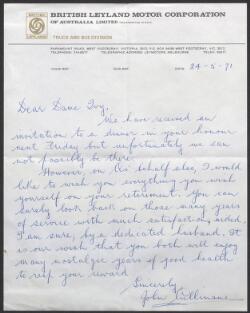 BRITISH LEYLAND MOTOR CORPORATION
OF AUSTRALIA LIMITED
LEYLAND
TRUCK AND BUS DIVISION
24-5-71
Dear Dame Ivy,
We have received an
invitation to a dinner in your honour
next Friday but unfortunately we can
not possibly be there.
However, on the behalf also, I would
like to wish you everything you wish
yourself on your retirement. You can
surely look back on those many years
of service with much satisfaction, aided,
I am sure, by a dedicated husband. It
is our wish that you both will enjoy
many nostalgic years of good health
to reap your reward
Sincerely,
John